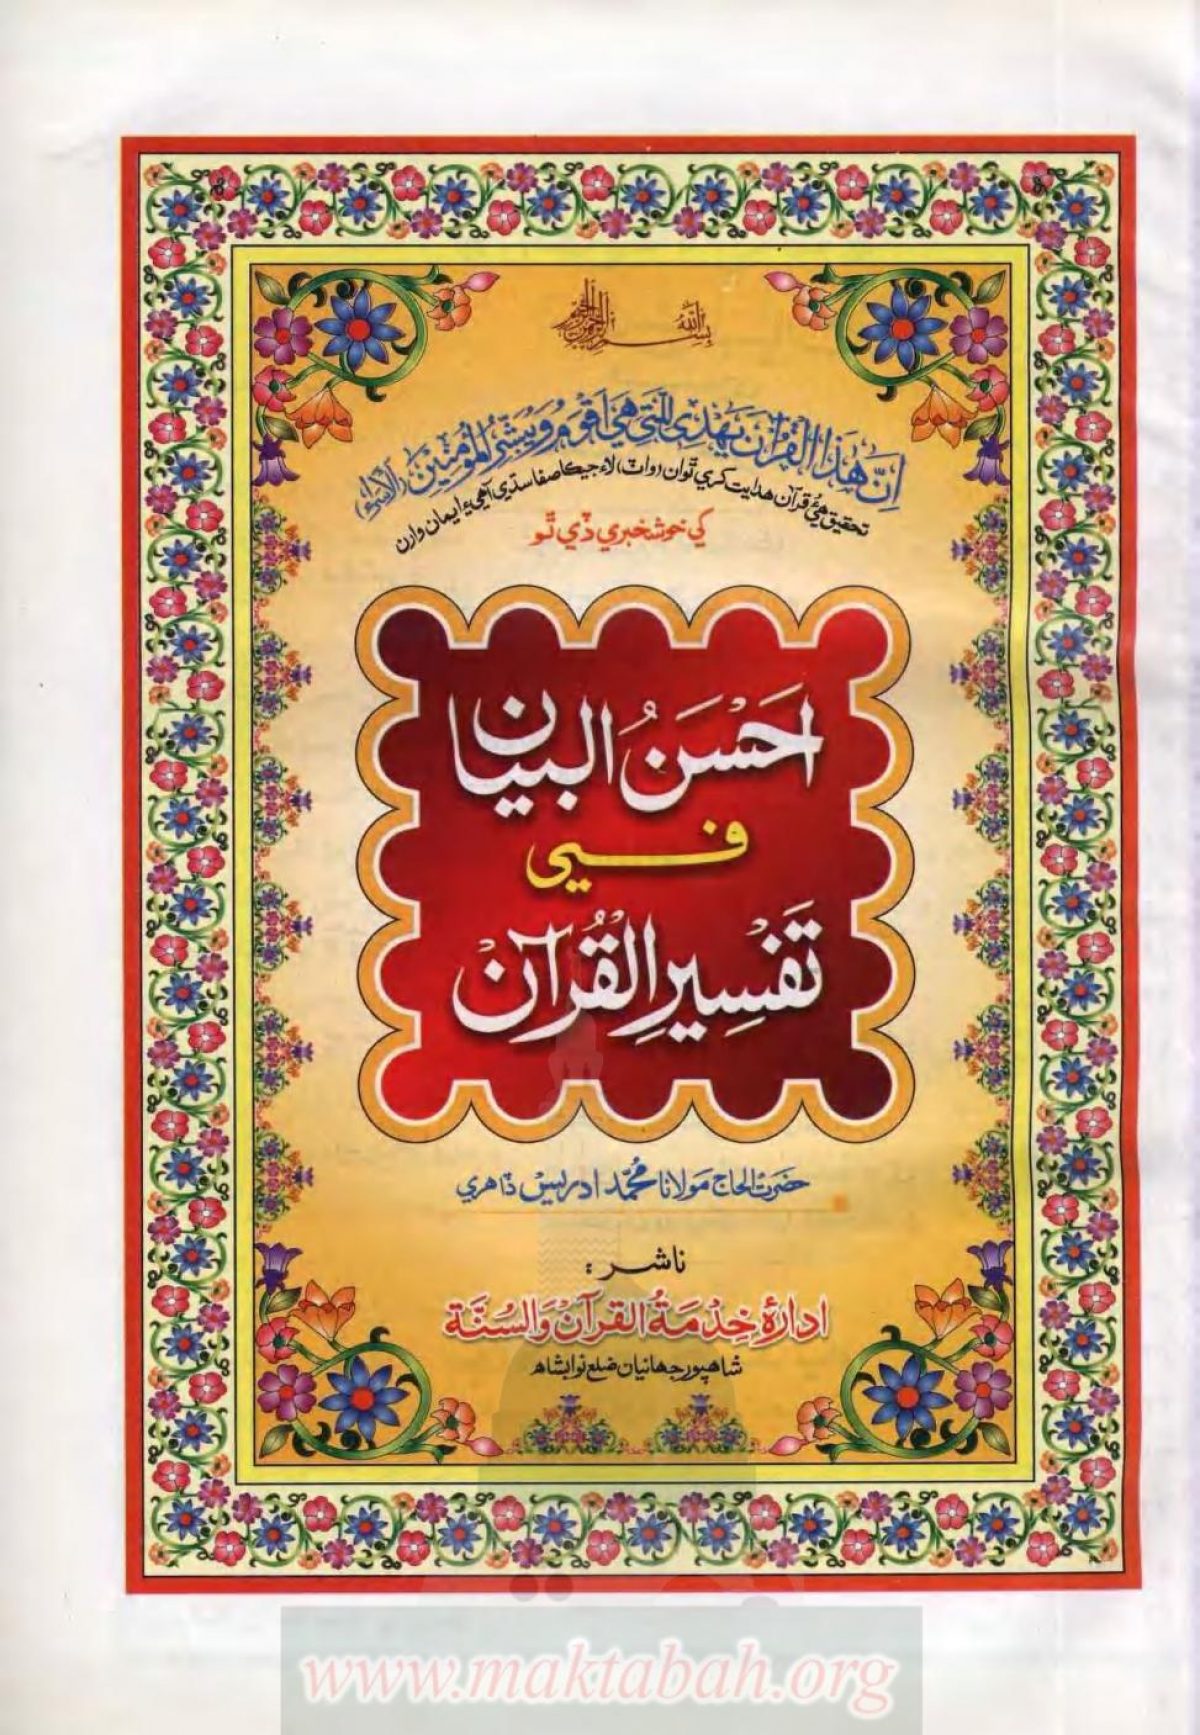 بِسْمِ اللّٰهِ الرَّحْمٰنِ الرَّحِيْمِ
اِنَّ هٰذَا الْقُرْآنَ يَهْدِىْ لِلَّتِىْ هِىَ اَقْوَمُ وَيُبَشِّرُ الْمُؤْمِنِيْنَ (الاسراء)
تحقيق هيءُ قرآن هدايت ڪري ٿو ان (واٽ) لاءِ جيڪا صفا سڌي آهي ۽ ايمان وارن
کي خوشخبري ڏي ٿو
اَحْسَنُ البيان
فــــي
تَفْسِيرِ القُرآن
حضرت الحاج مولانا محمّد ادريس ڏاهري
ناشر :
ادارهٔ خِدْمَةُ القرآن وَالسُنَّة
شاھپور جھانيان ضلع نوابشاھ
www.maktabah.org